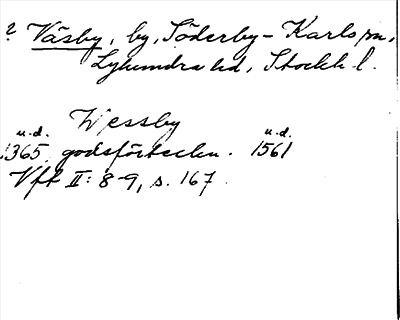 ? Väsby, by, Söderby-Karls sn,
Lyhundra hd, Stockh. l.
Wessby
u.d. u.d.
1365 godsförteckn. 1561
Vft II: 8-9, s. 167.